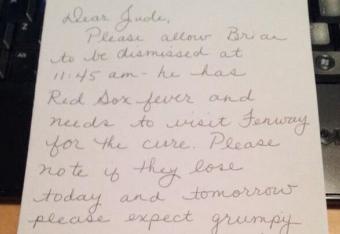 Dear Jude,
Please allow Brian
to be dismissed at
11:45 am - he has
Red Sox fever and
needs to visit Fenway
for the cure. Please
note if they lose
today and tomorrow
please expect grumpy